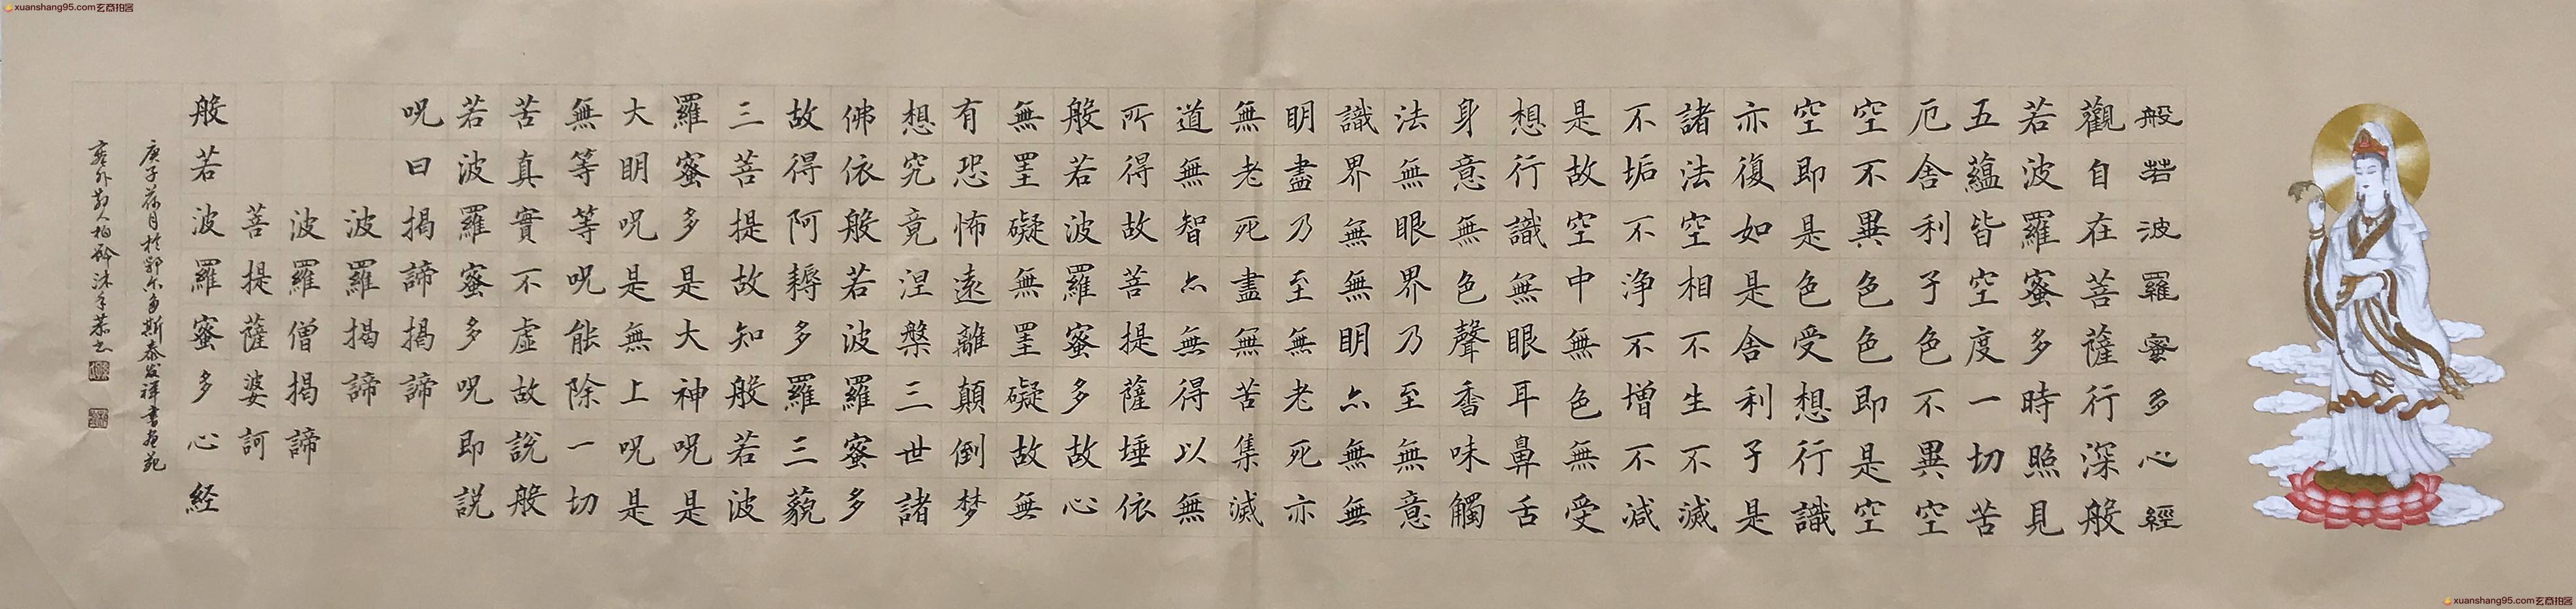 xuanshang95.com玄商拍客
般若波羅蜜多心經
觀自在菩薩行深般
若波羅蜜多時照見
五蘊皆空度一切苦
厄舍利子色不異空
空不異色色即是空
空即是色受想行識
亦復如是舍利子是
諸法空相不生不滅
不垢不淨不增不減
是故空中無色無受
想行識無眼耳鼻舌
身意無色聲香味觸
法無眼界乃至無意
識界無無明亦無無
明盡乃至無老死亦
無老死盡無苦集滅
道無智亦無得以無
所得故菩提薩埵依
般若波羅蜜多故心
無罣礙無罣礙故無
有恐怖遠離顛倒梦
想究竟涅槃三世諸
佛依般若波羅蜜多
故得阿耨多羅三藐
三菩提故知般若波
羅蜜多是大神呪是
大明呪是無上呪是
無等等呪能除一切
苦真實不虛故說般
若波羅蜜多呪即説
呪曰揭諦揭諦
波羅揭諦
波羅僧揭諦
菩提薩婆訶
般若波羅蜜多心経
庚子荷月於鄂尔多斯泰发祥書画苑
塞外人柏齡沐手恭书
xuanshang95.com玄商拍客